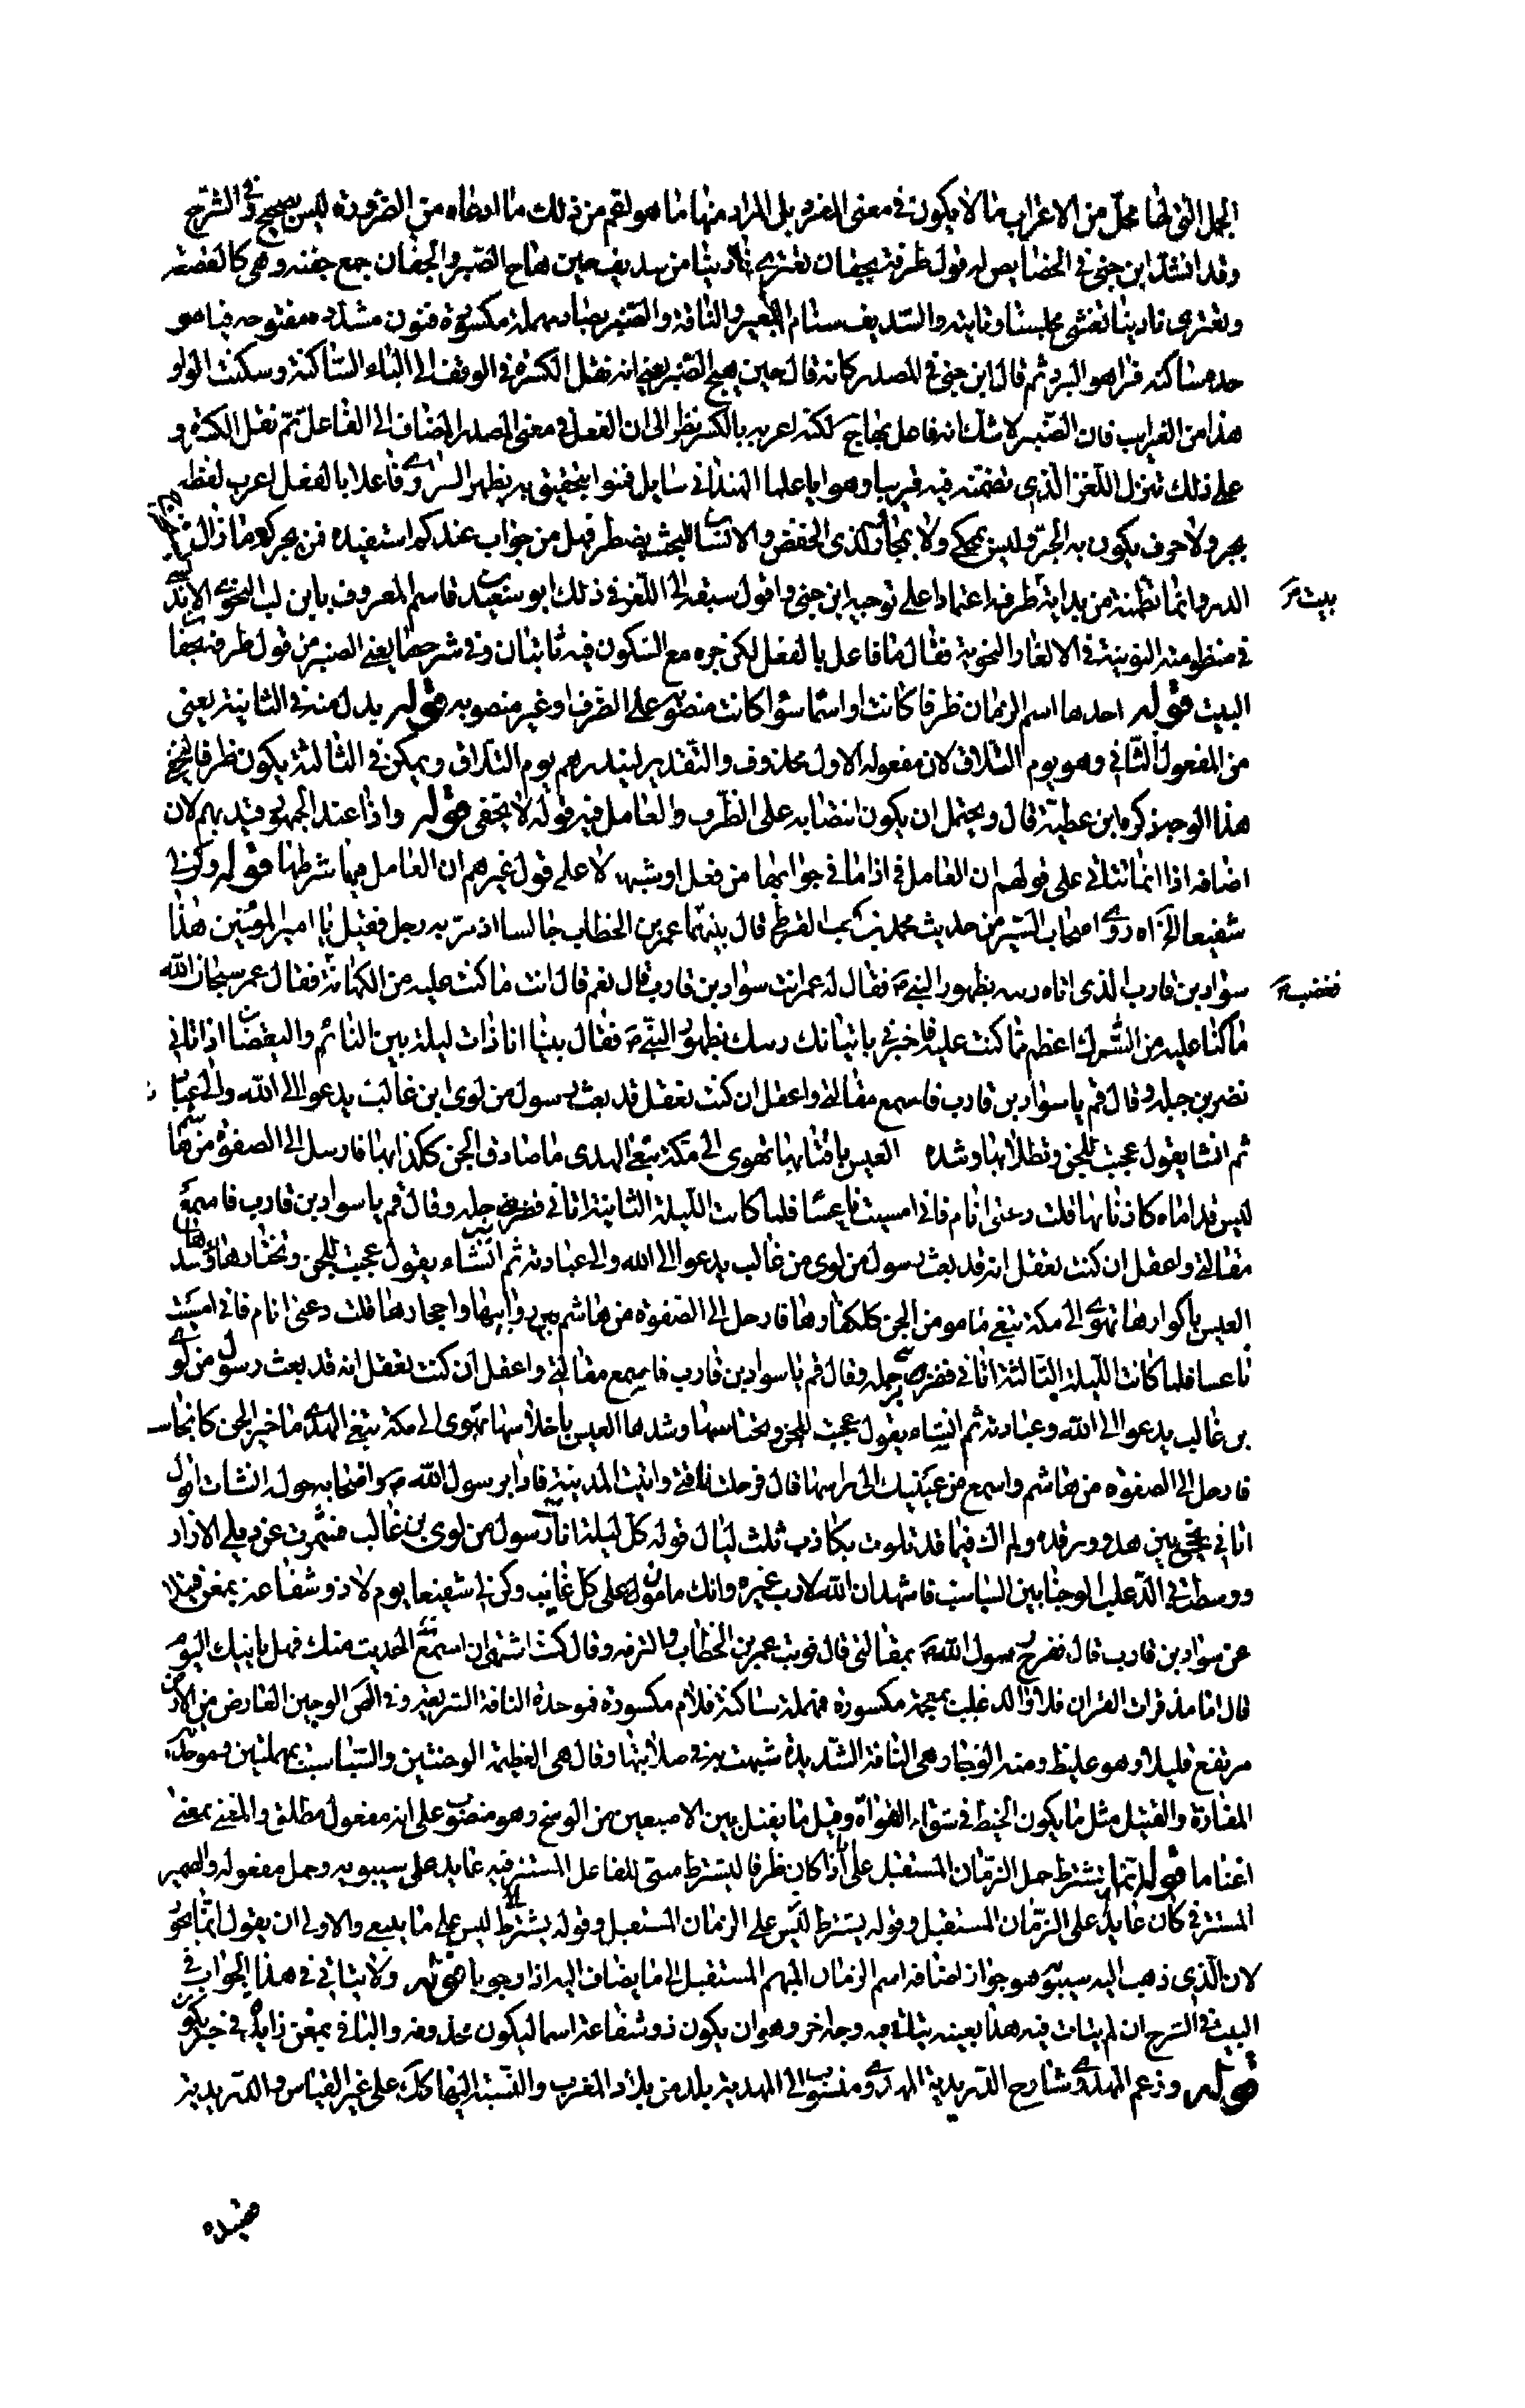 الجمل التى لها محل من الاعراب ما لا يكون فى معنى المفرد بل المراد منها ما هو اعم من ذلك ما ادعاه من الضرورة ليس بصحيح وفى الشرح
وقد انشد ابن جنى فى الخصايص له قول طرفة بجفان تعترى نادينا من سديف حين هاج الصنبر والجفان جمع جفنه وهى كالقصعة
وتعترى نادينا تغشى مجلسنا وتاتيه والسديف سنام البعير والناقة والصنبر بصاد مهملة مكسورة فنون مشددة مفتوحه فبا مو
حده ساكنه فرا هو البرد ثم قال ابن جنى فى المصدر كانه قال حين هيج الصنبر يعنى انه نقل الكسرة فى الوقف الى الباء الساكنة وسكنت الراء
هذا من الغرايب فان الصنبر لا شك انه فاعل بهاج لكنه اعربه بالكسر نظرا الى ان الفعل فى معنى المصدر المضاف الى الفاعل ثم نقل الكسرة و
على ذلك تنزل اللغز الذى نظمته فيه قريبا وهو ايا علما الهند انى سايل فمنوا بتحقيق به يظهر السر ارى فاعلا بالفعل اعرب لفظه
بجر ولا حرف يكون به الجر وليس بمحكى ولا بمجاور لذى الخفض والانسان للبحث يضطر فهل من جواب عندكم استفيده فمن بحركم ما زال
الدر وانما نظمته من بداية طرفه اعتمادا على توجيه ابن جنى واقول سبقه الى اللغز فى ذلك ابو سعيد قاسم المعروف بابن لب النحوى الاندلسى
بيت مر
فى منظومته النونية فى الالغاز النحوية فقال ما فاعل بالفعل لكن جره مع السكون فيه ثابتان وفى شرحها يعنى الصنبر من قول طرفه بجفان
البيت قوله احدها اسم الزمان ظرفا كانت او اسما سوا كانت منصوبه على الظرف او غير منصوبه قوله بدل منه فى الثانية يعنى
من المفعول الثانى وهو يوم التلاق لان مفعوله الاول محذوف والتقدير لينذرهم يوم التلاق ويمكن فى الثالثة يكون ظرفا
هذا الوجه ذكره ابن عطية قال ويحتمل ان يكون انتصابه على الظرف والعامل فيه قوله لا يخفى قوله واذا عند الجمهور قيد بهم لان
اضافه اذا انما تتاتى على قولهم ان العامل فى اذا ما فى جوابها من فعل او شبهه لا على قول غيرهم ان العامل فيها شرطها قوله وكن لى
شفيعا الخ اه روى اصحاب السير من حديث محمد بن كعب القرظى قال بينما عمر بن الخطاب جالسا اذ مر به رجل فقيل يا امير المومنين هذا
سواد بن قارب الذى اتاه ريه بظهور النبى ص فقال له عمر انت سواد بن قارب قال نعم قال انت ما كنت عليه من الكهانة فقال عمر سبحان الله
فغضب
ما كنا عليه من الشرك اعظم مما كنت عليه فاخبرنى باتيانك ريك بظهور النبى ص فقال بينا انا ذات ليلة بين النائم واليقضان اذ اتانى
فضربنى برجله وقال قم يا سواد بن قارب فاسمع مقالتى واعقل ان كنت تعقل قد بعث رسول من لوى ابن غالب يدعو الى الله والى عبادته
ثم انشا يقول عجبت للجن وتطلابها وشده العيس باقتابها تهوى الى مكة تبغى الهدى ما صادق الجن ككذابها فارحل الى الصفوة من هاشم
ليس قداماه كاذنابها قلت دعنى انام فانى امسيت ناعسا فلما كانت الليلة الثانية اتانى فضربنى برجله وقال قم يا سواد بن قارب فاسمع
مقالتى واعقل ان كنت تعقل انه قد بعث رسول من لوى من غالب يدعو الى الله والى عبادته ثم انشاء يقول عجبت للجن وتخبارها وشدها
العيس باكوارها تهوى الى مكة تبغى ما مومن الجن ككفارها فارحل الى الصفوة من هاشم بين روابيها واحجارها قلت دعنى انام فانى امسيت
ناعسا فلما كانت الليلة الثالثة اتانى فضربنى برجله وقال قم يا سواد بن قارب فاسمع مقالتى واعقل ان كنت تعقل انه قد بعث رسول من لوى
بن غالب يدعو الى الله وعبادته ثم انشاء يقول عجبت للجن وتحساسها وشدها العيس باحلاسها تهوى الى مكة تبغى الهدى ما خير الجن كانجاسها
فارحل الى الصفوه من هاشم واسم من عينيك الى راسها قال فرحلت ناقتى واتيت المدينة فاذا برسول الله ص واصحابه حوله انشات اقول
اتانى نجيى بين هدو ورقده ولم اك فيما قد تلوت بكاذب ثلث ليال قوله كل ليلة اتاك رسول من لوى بن غالب فشمرت عن ذيلى الازار
ووسطت فى الذعلب الوجنا بين السباسب فاشهد ان الله لا رب غيره وانك مامون على كل غايب وكن لى شفيعا يوم لا ذو شفاعة بمغن فتيلا
عن سواد بن قارب قال ففرح رسول الله ص بمقالتى قال فوثب عمر بن الخطاب والتزمه وقال كنت اشتهى ان اسمع الحديث منك فهل ياتيك اليوم
قال اما مذ قرات القران فلا والذعلب بمعجمة مكسورة فمهملة ساكنة فلام مكسورة فموحدة الناقة السريعة وفى الوجين العارض من الارض
مرتفع قليلا وهو غليظ ومنه الوجنا وهى الناقة الشديدة شبهت به فى صلابتها وقال هى العظيمة الوجنتين والسباسب بمهملتين وموحدة
المفازة والفتيل مثل ما يكون الخيط فى شق النواة وقيل ما يفتل بين الاصبعين من الوسخ وهو منصوب على انه مفعول مطلق والمعنى بمعنى
اغناما قوله انما يشترط حمل الزمان المستقبل على اذا كان ظرفا ليشترط مبنى للفاعل المستتر فيه عايد على سيبويه وحمل مفعوله والضمير
المستتر فى كان عايد على الزمان المستقبل وقوله يشترط ليس على الزمان المستقبل وقوله يشترط ليس على ما ينبغى والاولى ان يقول انما يجوز
لان الذى ذهب اليه سيبويه هو جواز اضافه اسم الزمان المبهم المستقبل الى ما يضاف اليه اذا وجوبا قوله ولا يتاتى فى هذا الجواب فى
البيت فى الشرح ان لم يتات فيه هذا بعينه يتات فيه وجه اخر وهو ان يكون ذو شفاعة اسما ليكون محذوفه والبا فى بمغن زايدة فى خبر يكون
قوله وزعم المهدوى شارح الدريدية المهدوى منسوب الى المهدية بلد من بلاد المغرب والنسبة اليها كك على غير القياس والدريدية
قصيده